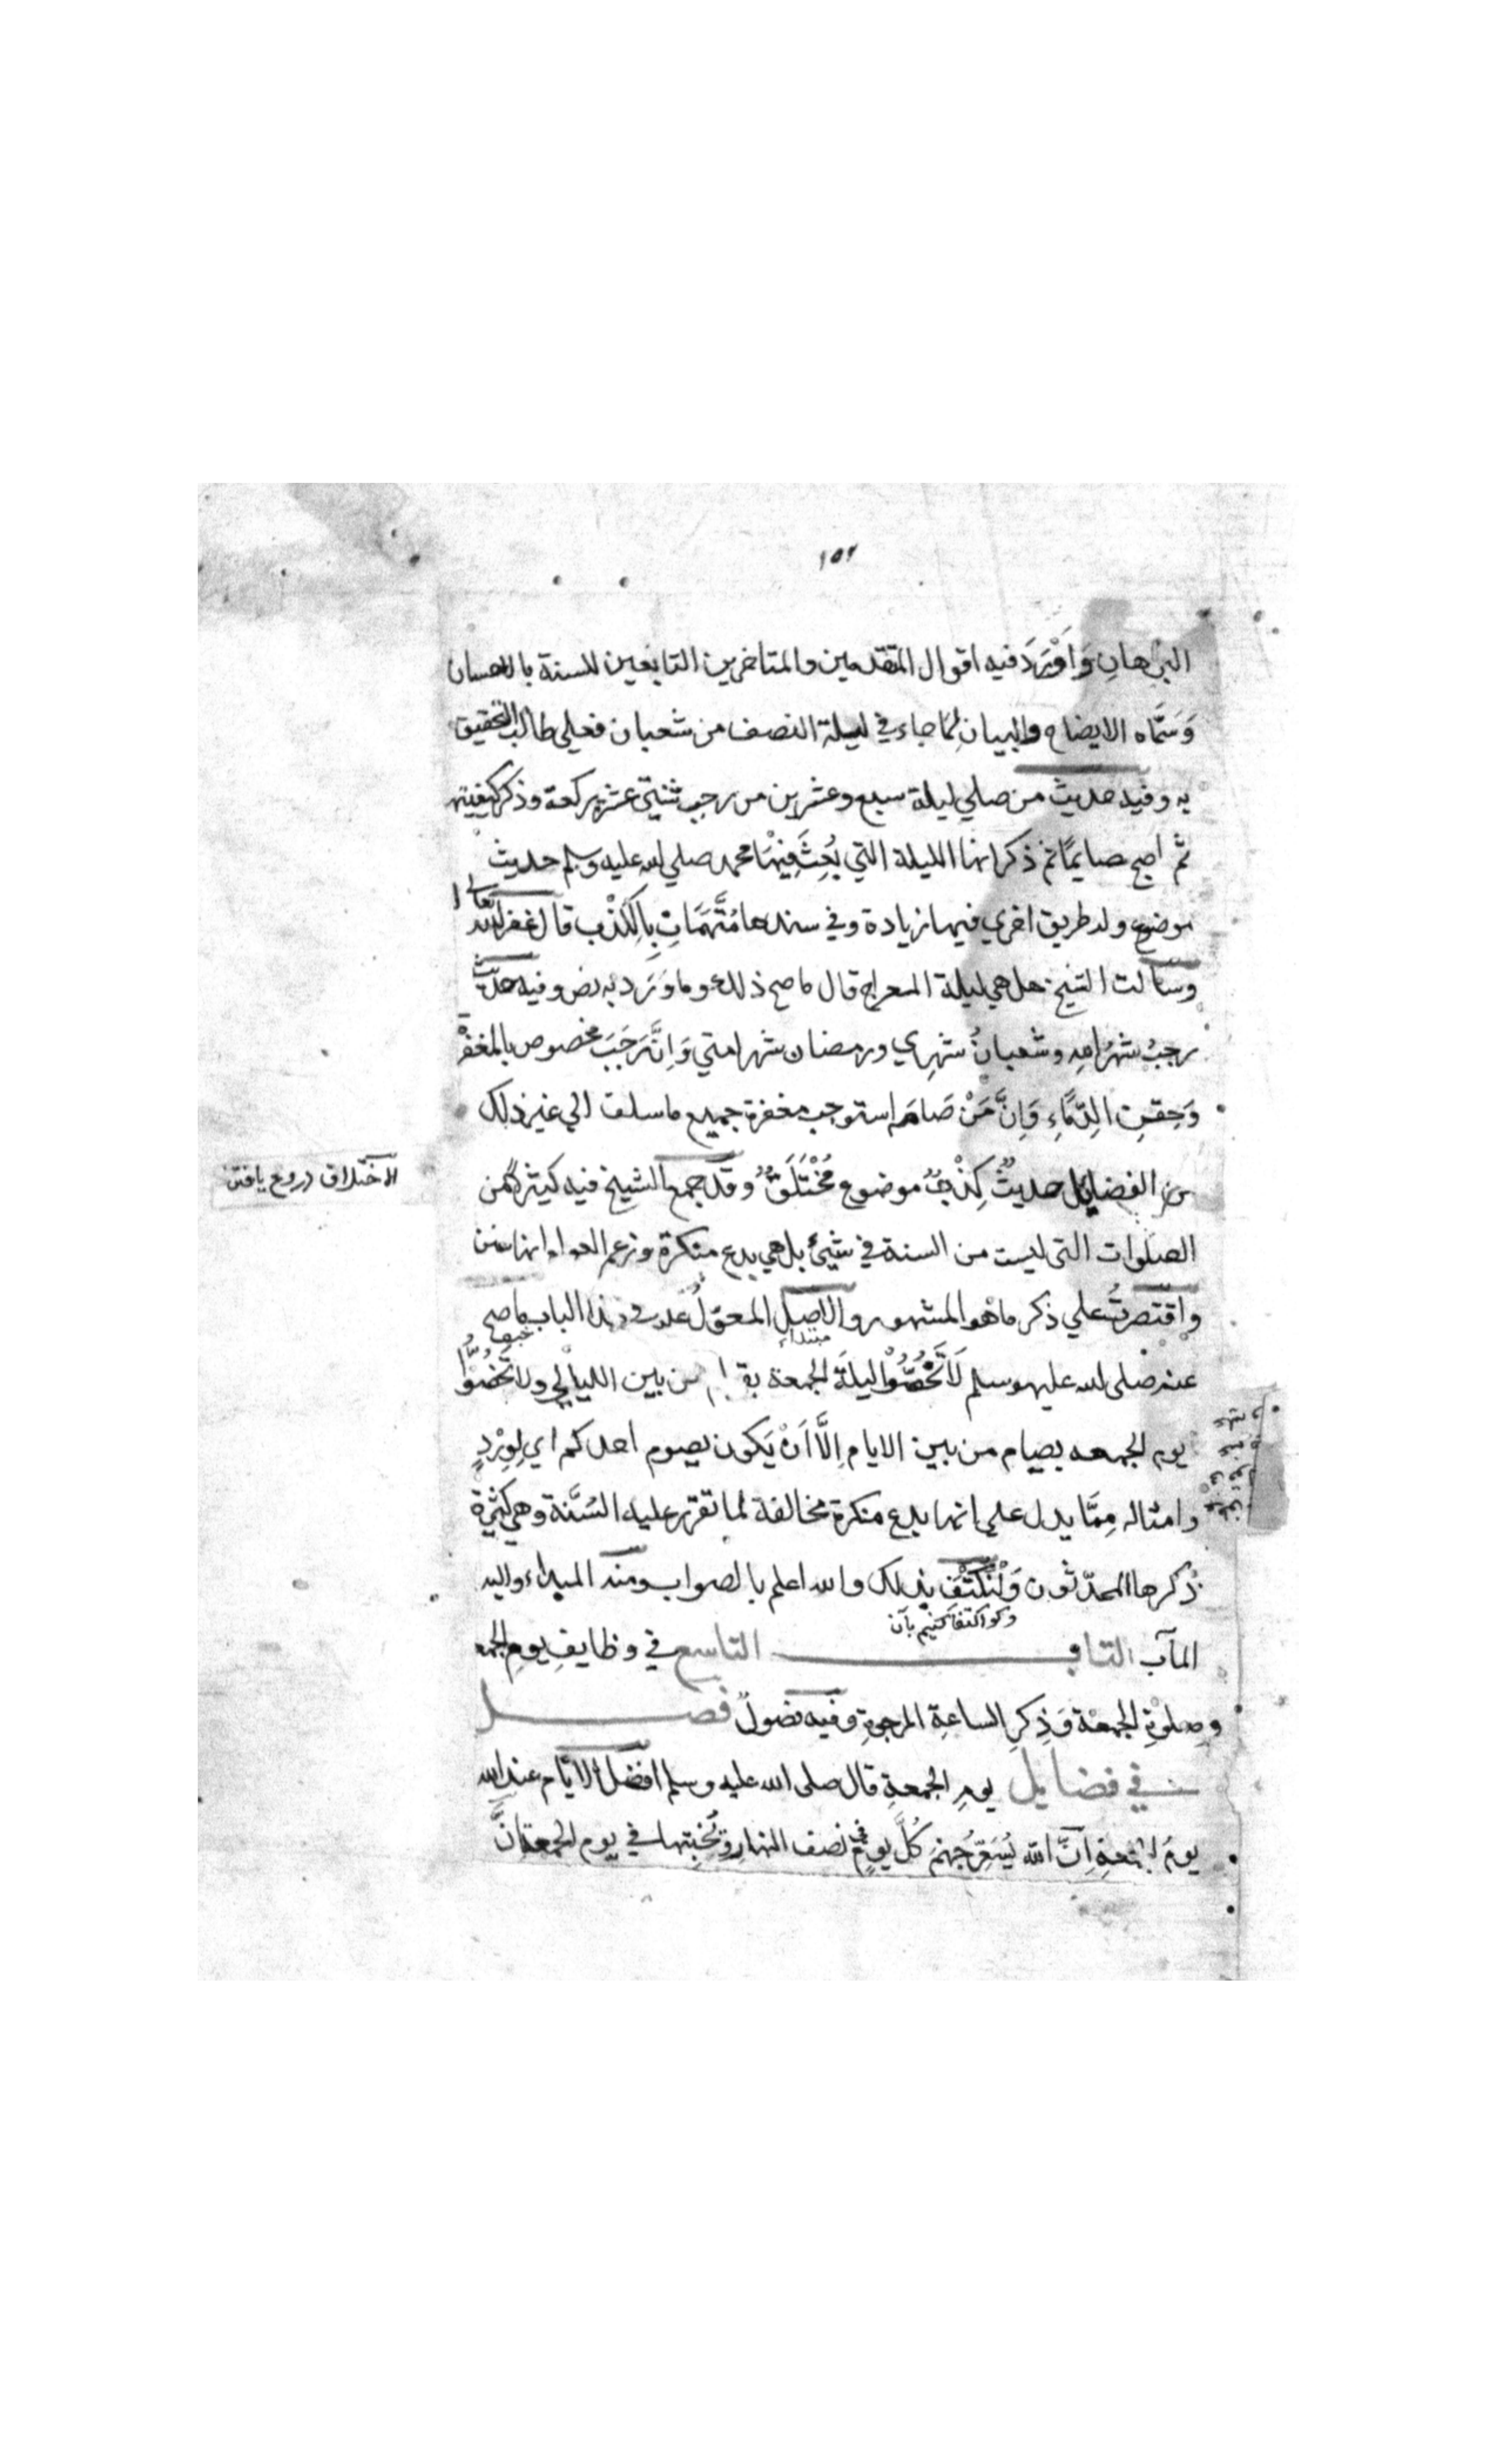 ١٥٢
البُرهانِ وَاَوْرَدَ فيه اقوال المتقدمين والمتاخرين التابعين للسنة بالاحسان
وَسَمَّاه الايضاح والبيان لِمَا جاء في ليلة النصف من شعبان فعلى طالب التحقيق
به وفيه حديث من صلي ليلة سبع وعشرين من رجب ثنتي عشر ركعة وذكر كيفيته
ثم اصبح صايمًا ثم ذكر انها الليلة التي بُعِثَ فِيْهَا محمد صلي الله عليه وسلم حديث
موضوع وله طريق اخري فيها زيادة وفي سندها مُتَّهَمَاتِ بِالكِذْبِ قال غفر الله تعالى
وسالت الشيخ هل هي ليلة المعراج قال ما صح ذلك وما وَرَد به نص وفيه حديث
رجبُ شهرُ الله وشعبانُ شهرِي ورمضان شهر امتي وَاِنَّ رَجَبَ مخصوص بالمغفرة
وَحِقنِ الدِّمَاءِ وَاِنَّ مَنْ صَامَه استوجب مغفرة جميع ما سلف الي غير ذلك
من الفضايل حديثٌ كِذْبٌ موضوع مُخْتَلَقٌ وقد جمع الشيخ فيه كثيرًا من
الاختلاق دروغ يافتن
الصلوات التى ليست من السنة في شيئ بل هي بدع منكرة وزعم العوام انها سنن
واقتصرتُ علي ذكر ما هو المشهور والاصل المعوّلُ عليه في هذا الباب ما صح
مبتداء خبره
عنه صلى الله عليه وسلم لَا تَخُصُّوْا ليلةَ الجمعة بقيام من بين الليالي ولا تَخُصُّوْا
يوم الجمعه بصيام من بين الايام اِلَّا اَنْ يَكون بصوم احدكم اي لِوِرْدٍ
وامثاله مِمَّا يدل على انها بدع منكرة مخالفة لما تقرر عليه السُنَّة وهي كثيرة
ذكرها المحدّثون وَلْنَكْتَفِ بذلك والله اعلم بالصواب ومنه المبداء واليه
وكو اكتفا كنيم بآن
المآب الباب التاسع في وظايفِ يومِ الجمعة
وصلوةِ الجمعة وَذِكرِ الساعةِ المرجوةِ وفيه فصولٌ فصل
في فضايل يومِ الجمعةِ قال صلى الله عليه وسلم افضل الايّام عند الله
يومُ الجمعةِ اِنَّ الله يُسَعِّرُ جهنمَ كُلَّ يومٍ في نصف النهار وَيُخْبِتُها في يوم الجمعة اِنَّ